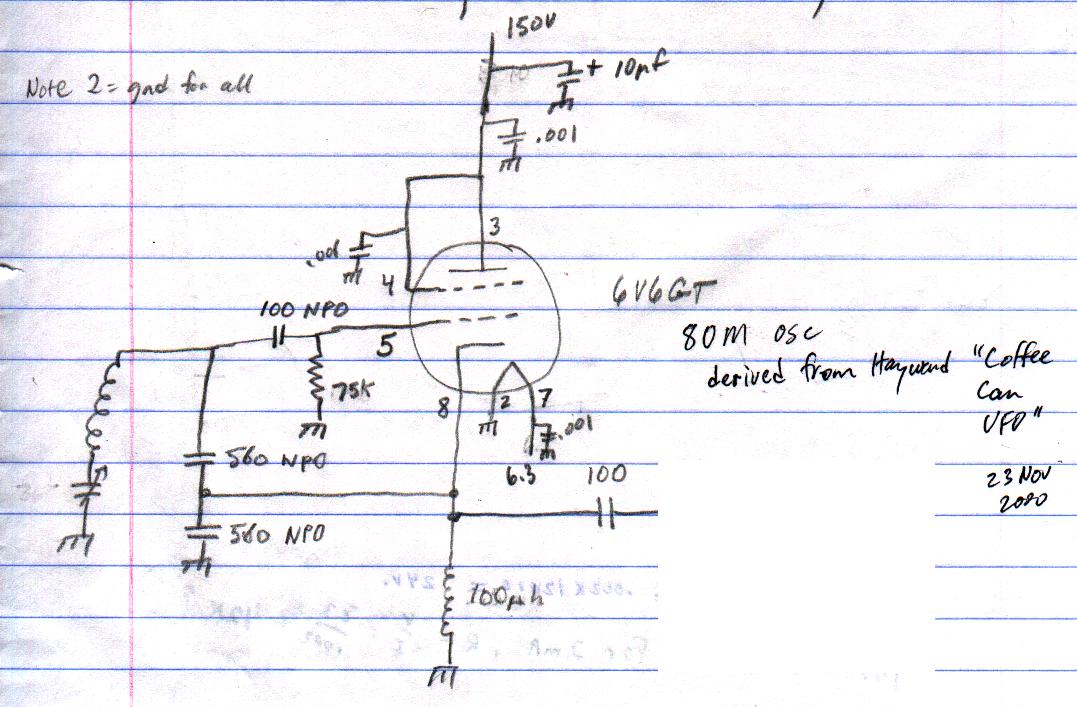 150V
+ 10µf
Note 2 = gnd for all
.001
3
.001
4
6V6GT
100 NPO
5
80M OSC
derived from Hayward "Coffee
Can
VFO"
75K
8
2
7
.001
560 NPO
6.3
100
23 Nov
560 NPO
100µh